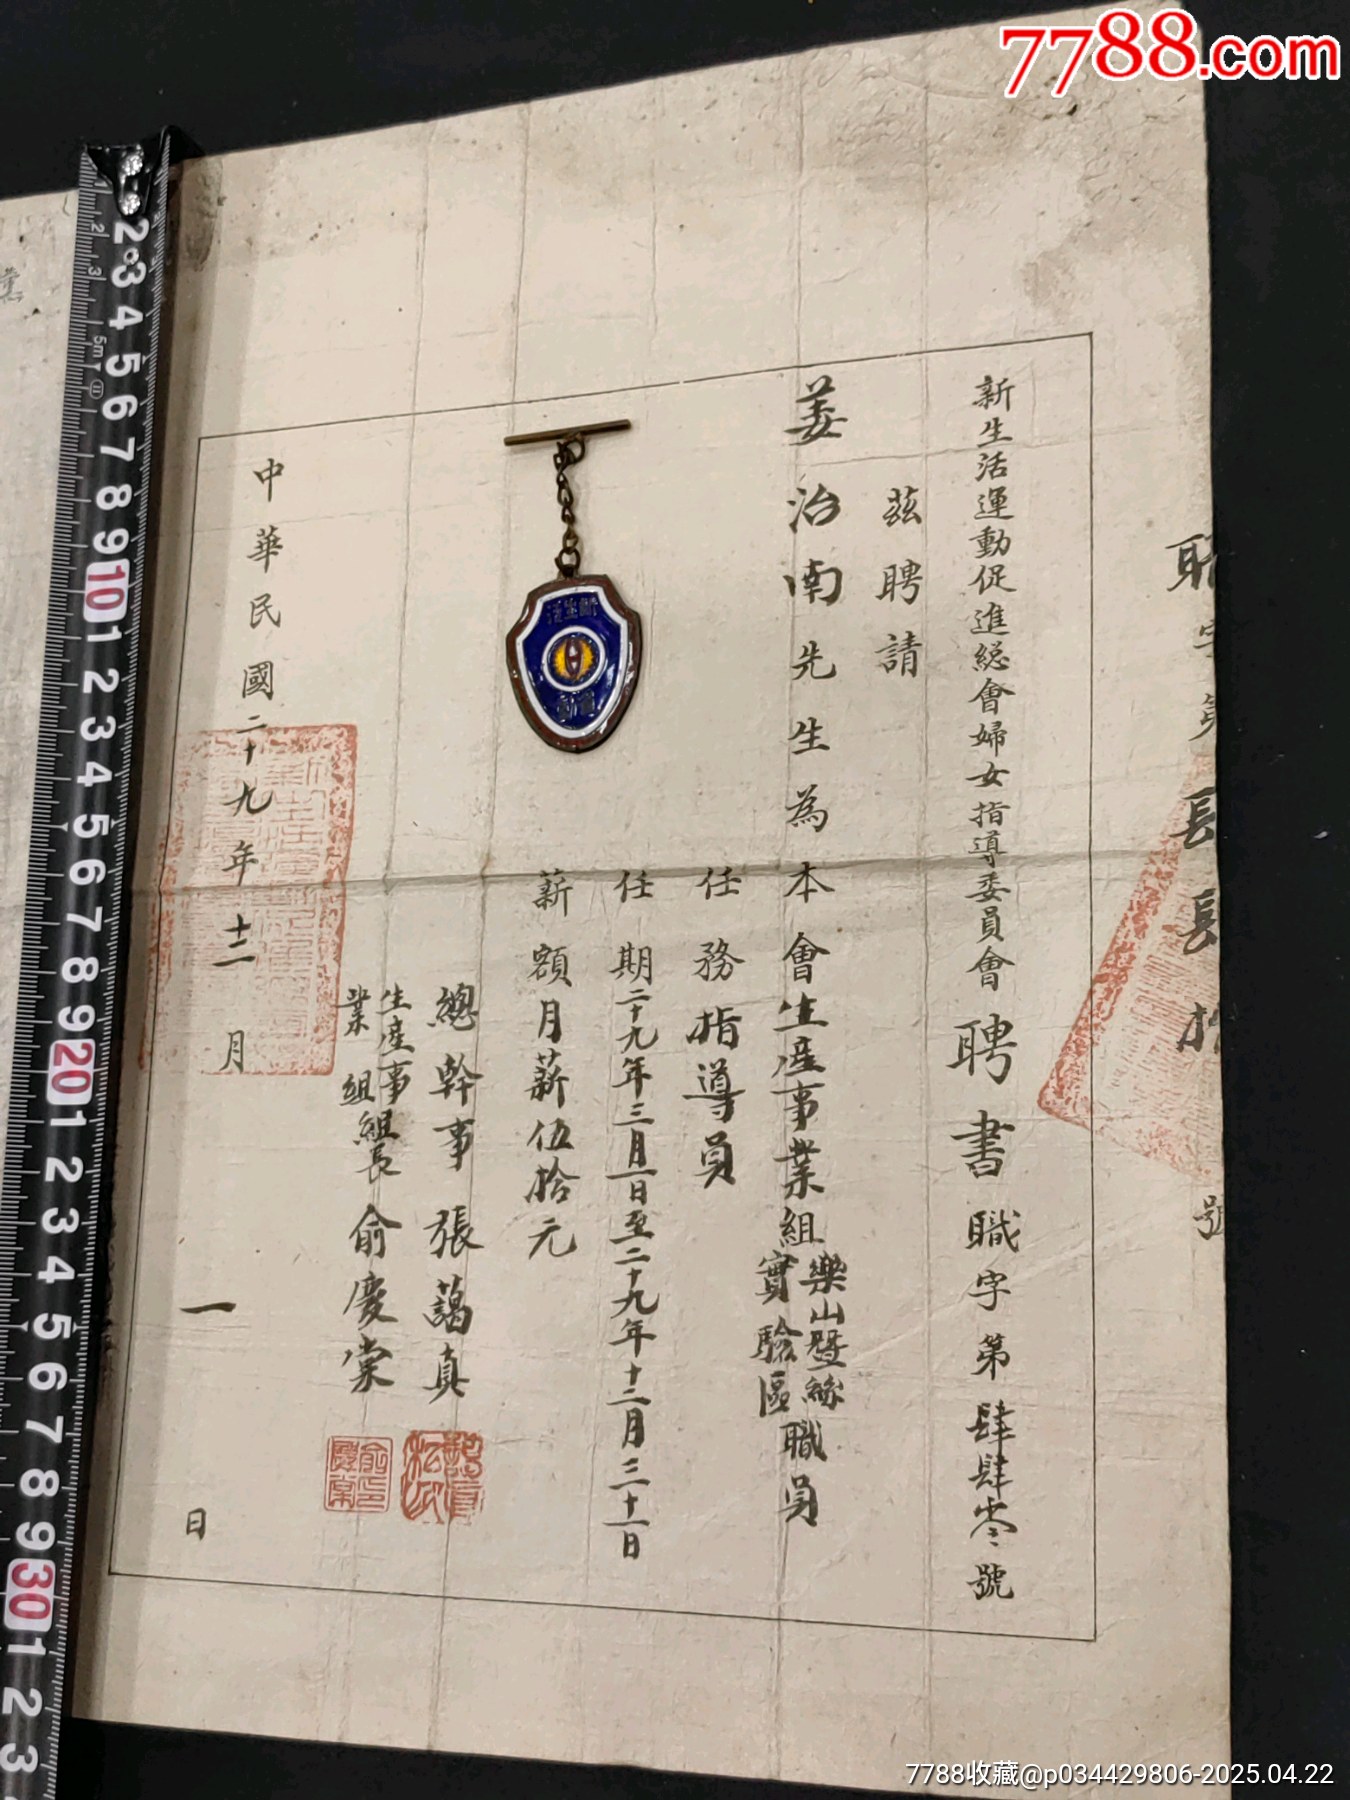 7788.com
新生活運動促進總會婦女指導委員會聘書職字第肆肆零號
茲聘請
姜治南先生為本會生產事業組樂山暨絲實驗區職員
任務指導員
任期二十九年三月一日至二十九年十二月三十一日
薪額月薪伍拾元
總幹事張藹真
生產事業組組長俞慶棠
中華民國二十九年十二月一日
號
新生活
運動
7788收藏@p034429806-2025.04.22